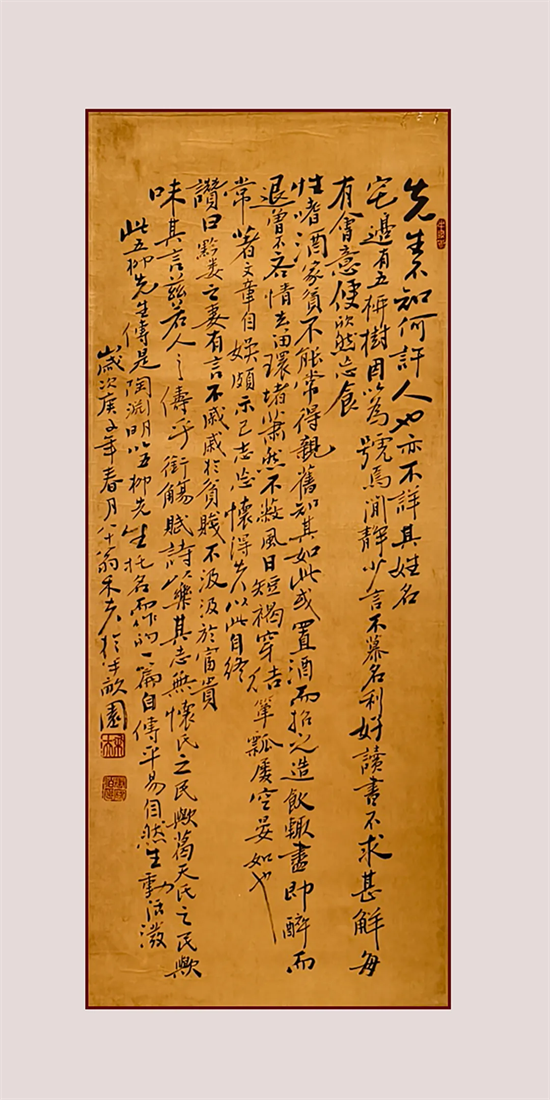 先生不知何許人也亦不詳其姓名
宅邊有五柳樹因以為號焉閒靜少言不慕名利好讀書不求甚解每
有會意便欣然忘食
性嗜酒家貧不能常得親舊知其如此或置酒而招之造飲輒盡即醉而
退曾不吝情去留環堵蕭然不蔽風日短褐穿結簞瓢屢空晏如也
常著文章自娛頗示己志忘懷得失以此自終
讚曰黔婁之妻有言不戚戚於貧賤不汲汲於富貴
味其言茲若人之傳乎銜觴賦詩以樂其志無懷氏之民歟葛天氏之民歟
此五柳先生傳是陶淵明以五柳先生托名而作的一篇自傳平易自然生動活潑
歲次庚子年春月八十翁於半畝園